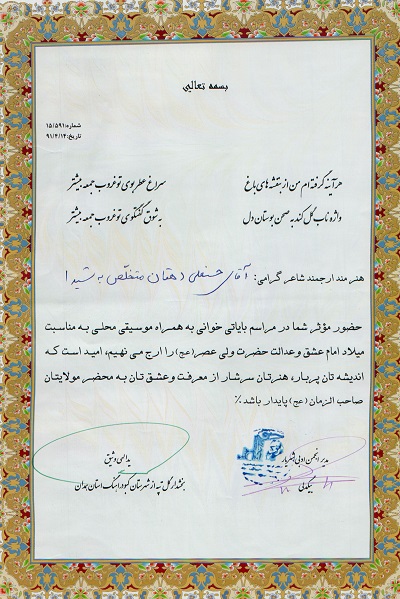 بسمه تعالی
شماره: ۱۵/۵۹۱
تاریخ: ۹۱/۴/۱۴
هر آینه گرفته ام من از بنفشه های باغ سراغ عطر بوی تو غروب جمعه بیشتر
واژه ناب گل کند به صحن بوستان دل به شوق گفتگوی تو غروب جمعه بیشتر
هنرمند ارجمند شاعر گرامی: آقای حسنعلی دهقان متخلّص به شیدا
حضور مؤثر شما در مراسم بایاتی خوانی به همراه موسیقی محلی به مناسبت
میلاد امام عشق و عدالت حضرت ولی عصر (عج) را ارج می نهیم، امید است که
اندیشه تان پربار، هنرتان سرشار از معرفت و عشق تان به محضر مولایتان
صاحب الزمان (عج) پایدار باشد ٪
مدیر انجمن ادبی شهریار
بیگدلی
یدالهی وثیق
بخشدار گل تپه از شهرستان کبودرآهنگ استان همدان